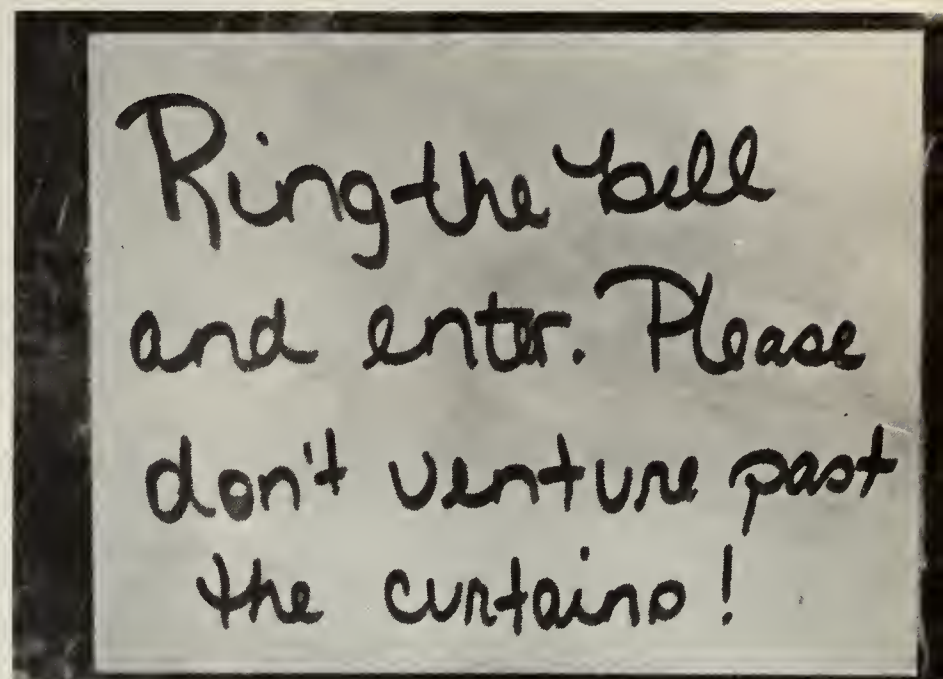 Ring the bell
and enter. Please
don't venture past
the curtains!